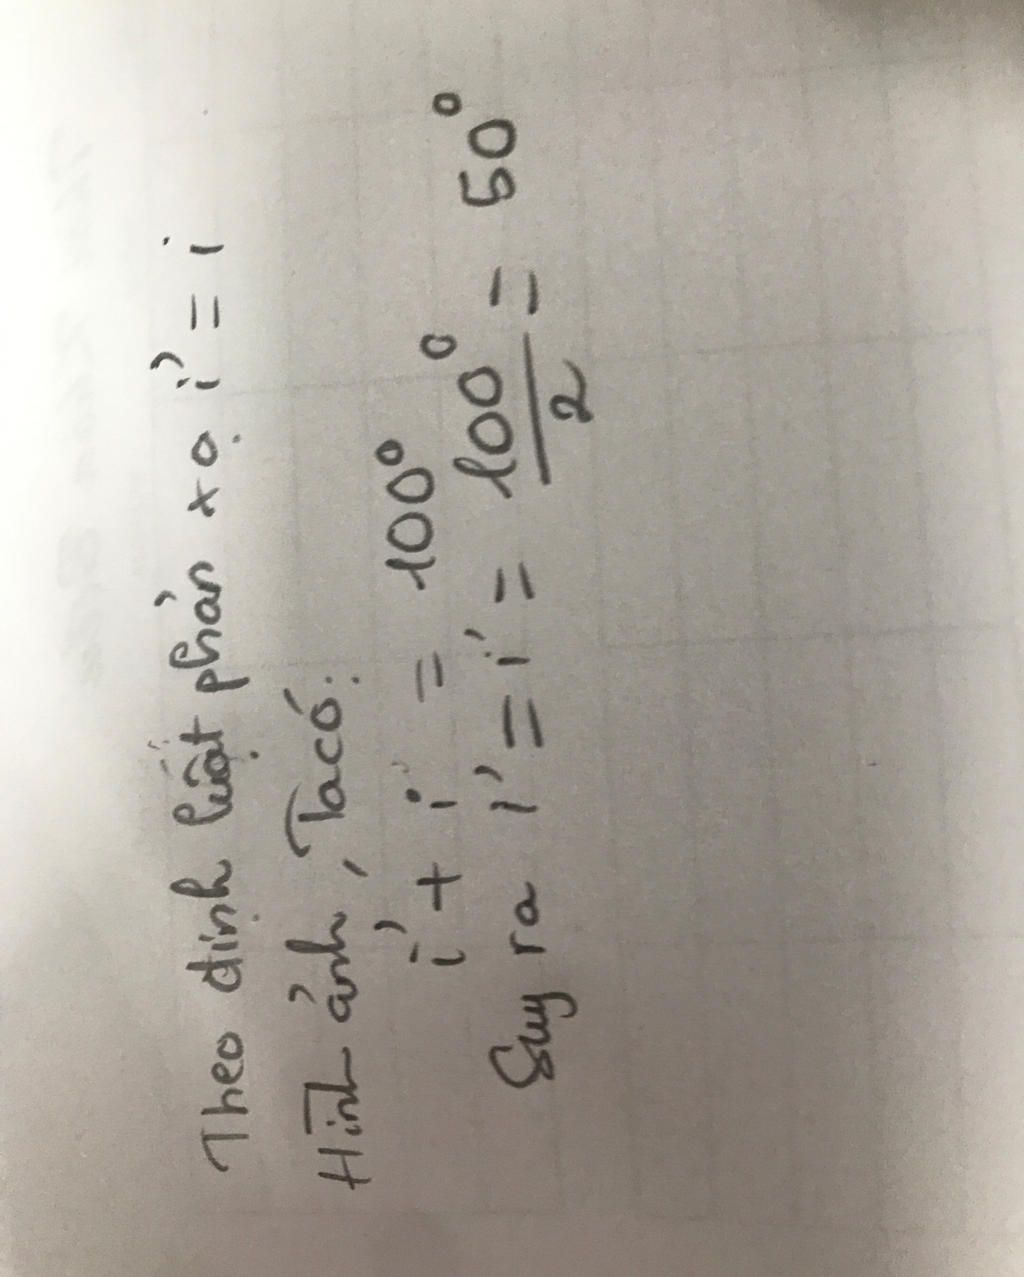 Theo định luật phản xọ i' = i
Hình ảnh, Ta có:
i' + i = 100°
Suy ra i' = i' = 100°/2 = 50°